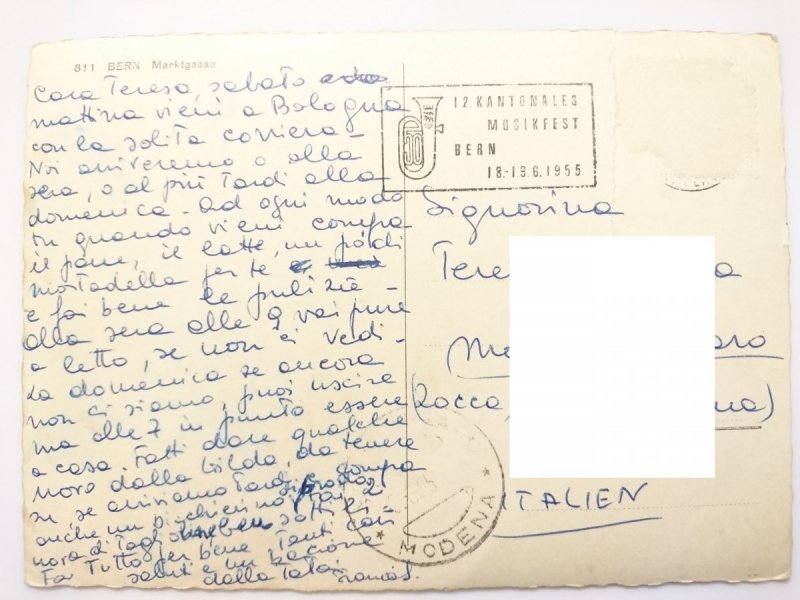 811 BERN Marktgasse
Cara Teresa, sabato
mattina vieni a Bologna
con la solita corriera -
Noi arriveremo o alla
sera, o al più tardi alla
domenica - Ad ogni modo
tu quando vieni compra
il pane, il latte, un po' di
mortadella per te
e fai bene le pulizie -
alla sera alle 9 vai pure
a letto, se non ci vedi -
La domenica se ancora
non ci siamo, puoi uscire
ma alle 7 in punto essere
a casa. Fatti dare qualche
novo dalla Gilda, da tenere
su se arriviamo tardi, compra
anche un
nova di
Far tutto per bene Tanti cari
saluti e un bacione
dalla Tata
12. KANTONALES
MUSIKFEST
BERN
18.-19.6.1955
Signorina
Tere
(Rocca,
ITALIEN
MODENA